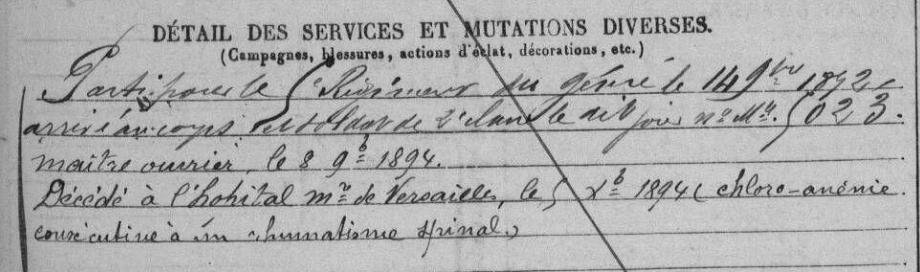 DÉTAIL DES SERVICES ET MUTATIONS DIVERSES.
(Campagnes, blessures, actions d'éclat, décorations, etc.)
Parti pour le 5e Régiment du génie le 14 9bre 1892,
arrivé au corps et soldat de 2e classe le dit jour no Mle 5023.
maître ouvrier, le 8 9b 1894.
Décédé à l'hôpital mre de Versailles, le 5 Xb 1894 (chloro-anémie
consécutive à un rhumatisme spinal.)